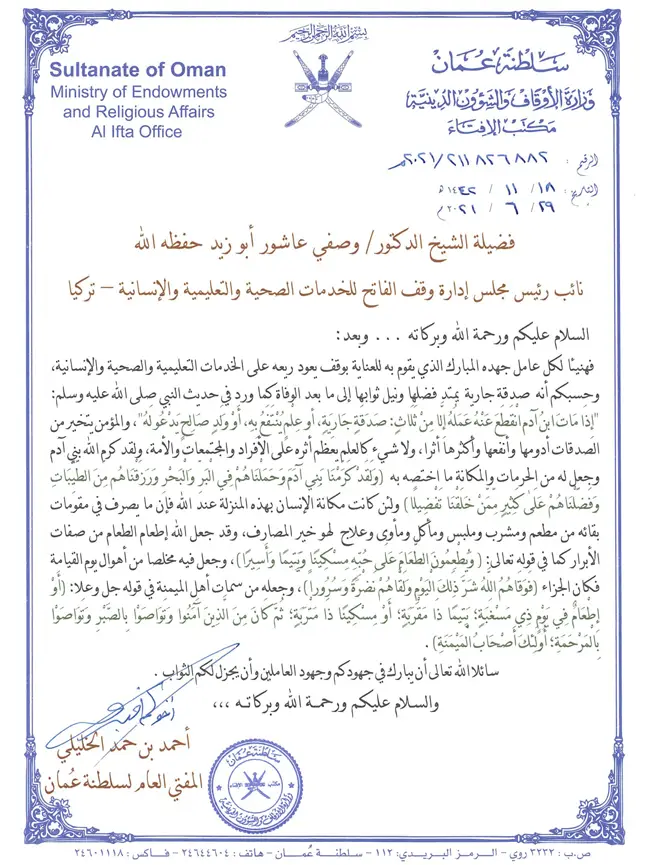 بسم الله الرحمن الرحيم
Sultanate of Oman
Ministry of Endowments
and Religious Affairs
Al Ifta Office
سلطنة عُمان
وزارة الأوقاف والشؤون الدينية
مكتب الإفتاء
الرقم : ٢٠٢١/٢١١٨٢٦٨٨٢م
التاريخ : ١٨ / ١١ / ١٤٤٢ هـ
٢٩ / ٦ / ٢٠٢١ م
فضيلة الشيخ الدكتور/ وصفي عاشور أبو زيد حفظه الله
نائب رئيس مجلس إدارة وقف الفاتح للخدمات الصحية والتعليمية والإنسانية – تركيا
السلام عليكم ورحمة الله وبركاته ... وبعد:
فهنيئا لكل عامل جهده المبارك الذي يقوم به للعناية بوقف يعود ريعه على الخدمات التعليمية والصحية والإنسانية،
وحسبكم أنه صدقة جارية يمتد فضلها ونيل ثوابها إلى ما بعد الوفاة كما ورد في حديث النبي صلى الله عليه وسلم:
"إذا مات ابن آدم انقطع عنه عمله إلا من ثلاث: صدقة جارية، أو علم ينتفع به، أو ولد صالح يدعو له"، والمؤمن يتخير من
الصدقات أدومها وأنفعها وأكثرها أثرا، ولا شيء كالعلم يعظم أثره على الأفراد والمجتمعات والأمة، ولقد كرم الله بني آدم
وجعل له من الحرمات والمكانة ما اختصه به (ولقد كرمنا بني آدم وحملناهم في البر والبحر ورزقناهم من الطيبات
وفضلناهم على كثير ممن خلقنا تفضيلا) ولئن كانت مكانة الإنسان بهذه المنزلة عند الله فإن ما يصرف في مقومات
بقائه من مطعم ومشرب وملبس ومأكل ومأوى وعلاج لهو خير المصارف، وقد جعل الله إطعام الطعام من صفات
الأبرار كما في قوله تعالى: (ويطعمون الطعام على حبه مسكينا ويتيما وأسيرا)، وجعل فيه مخلصا من أهوال يوم القيامة
فكان الجزاء (فوقاهم الله شر ذلك اليوم ولقاهم نضرة وسرورا)، وجعله من سمات أهل الميمنة في قوله جل وعلا: (أو
إطعام في يوم ذي مسغبة؛ يتيما ذا مقربة؛ أو مسكينا ذا متربة؛ ثم كان من الذين آمنوا وتواصوا بالصبر وتواصوا
بالمرحمة؛ أولئك أصحاب الميمنة).
سائلا الله تعالى أن يبارك في جهودكم وجهود العاملين وأن يجزل لكم الثواب.
والسلام عليكم ورحمة الله وبركاته ،،،
أحمد بن حمد الخليلي
المفتي العام لسلطنة عُمان
سلطنة عمان
مكتب الإفتاء
وزارة الأوقاف والشؤون الدينية
ص.ب: ٣٢٣٢ روي – الرمز البريدي: ١١٢ – سلطنة عُمان – هاتف: ٢٤٦٤٤٦٠٤ – فاكس: ٢٤٦٠١١١٨